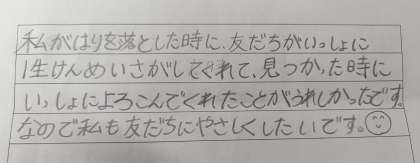 私がはりを落とした時に、友だちがいっしょに
1生けんめいさがしてくれて、見つかった時に
いっしょによろこんでくれたことがうれしかったです。
なので私も友だちにやさしくしたいです。